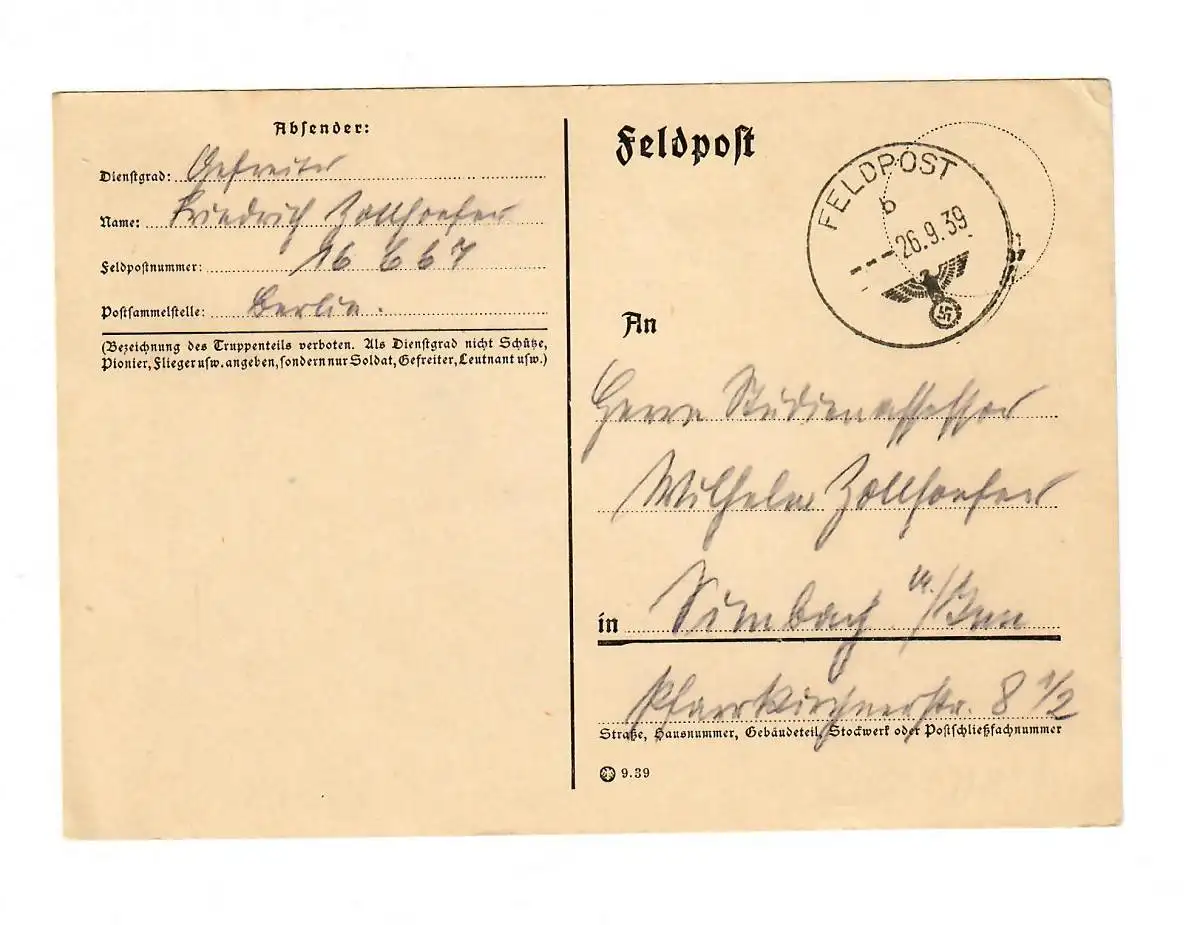 Absender:
Dienstgrad: Gefreiter
Name: Friedrich Zollhoefer
Feldpostnummer: 16 667
Postsammelstelle: Berlin.
(Bezeichnung des Truppenteils verboten. Als Dienstgrad nicht Schütze,
Pionier, Flieger usw. angeben, sondern nur Soldat, Gefreiter, Leutnant usw.)
Feldpost
FELDPOST
b
26.9.39
An
Herrn Studienassessor
Wilhelm Zollhoefer
in Simbach a./Inn
Pfarrkirchnerstr. 8 1/2
Straße, Hausnummer, Gebäudeteil, Stockwerk oder Postschließfachnummer
9.39